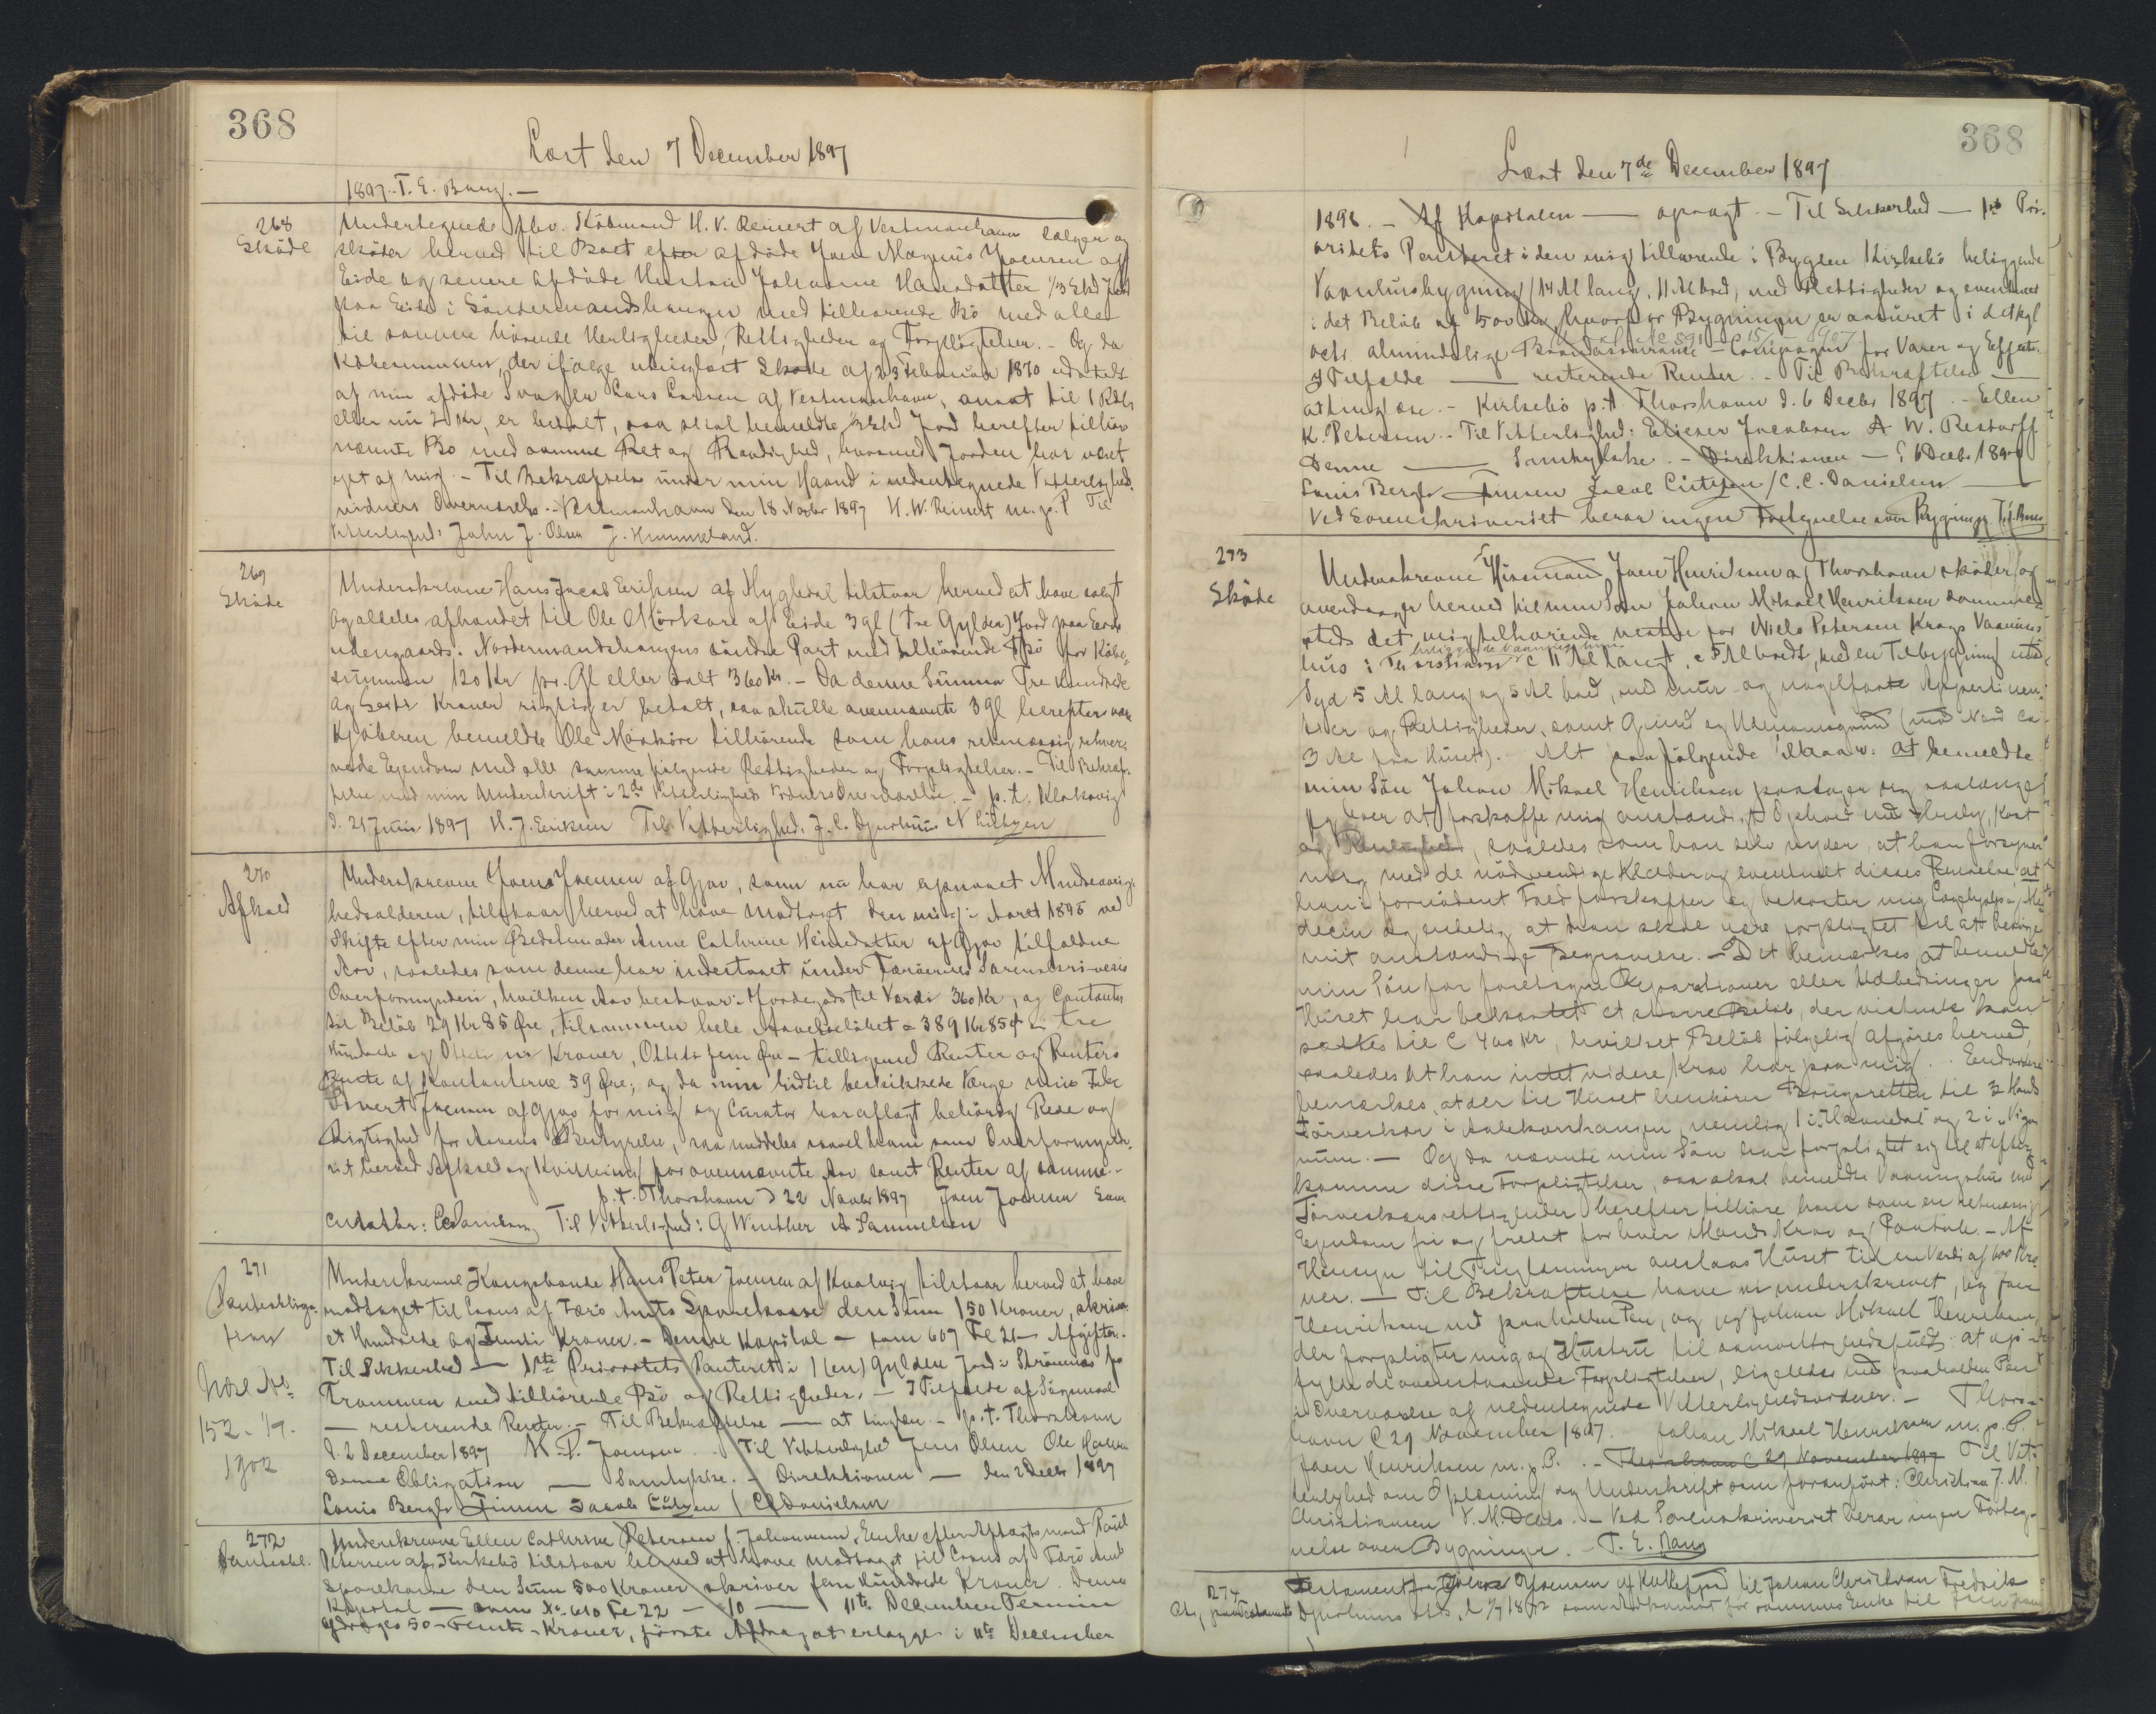 368
Læst den 7 December 1897
1897. T. E. Bang. —
268
Skøde
Undertegnede fhv. Købmand H. V. Reinert af Vestmanhavn sælger og
skøder herved til Boet efter afdøde Joen Magnus Joensen af
Eide og senere afdøde Hustru Johanne Hansdatter 1/3 Skd Jord
paa Eide i Søndermandshaugen med tilhørende Bø med alle
til samme hørende Herligheder, Rettigheder og Forpligtelser. — Og da
Købesummen, der ifølge utinglæst Skøde af 23 Februar 1870 udstedt
af min afdøde Svoger Lars Larsen af Vestmanhavn, ansat til 1 Rdlr
eller nu 2 Kr, er betalt, saa skal bemeldte 1/3 Skd Jord herefter tilhøre
nævnte Bo med samme Ret og Raadighed, hvormed Jorden har været
ejet af mig. — Til Bekræftelse under min Haand i nedentegnede Vitterligheds
vidners Overværelse. — Vestmanhavn den 18 Novbr 1897 H. W. Reinert m. p. P Til
Vitterlighed: John J. Olsen J. Hummeland.
269
Skøde
Underskrevne Hans Jacob Eriksen af Hygledal tilstaar herved at have solgt
og aldeles afhændet til Ole Mørkøre af Eide 3 gl (Tre Gylden) Jord paa Eide
udengaards i Nordermandshaugens søndre Part med tilhørende Bø for Købe-
summen 120 Kr pr. Gl eller ialt 360 Kr. — Da denne Summa Tre Hundrede
og Sexti Kroner rigtig er betalt, saa skulle ovennævnte 3 gl herefter være
Kjøberen bemeldte Ole Mørkøre tilhørende som hans retmæssig erhver-
vede Ejendom med alle samme følgende Rettigheder og Forpligtelser. — Til Bekræf-
telse med min Underskrift i 2de Vitterligheds Vidners Overværelse. — p. t. Klaksvig
d. 21 Juni 1897 H. J. Eriksen Til Vitterlighed: J. C. Djurhuus N Lützen
270
Afkald
Underskrevne Joen Joensen af Gjov, som nu har opnaaet Myndig-
hedsalderen, tilstaar herved at have modtaget den mig i Aaret 1895 ved
Skifte efter min Bedstemoder Anne Cathrine Heinesdatter af Gjov tilfaldne
Arv, saaledes som denne har indestaaet under Færøernes Sorenskriveries
Overformynderi, hvilken Arv bestaar i Jordegods til Værdi 360 Kr, og Contanter
til Beløb 29 Kr 85 Øre, tilsammen hele Arvebeløbet = 389 Kr 85 Ø Tre
Hundrede og Otteti ni Kroner, Otteti fem Øre — tilligemed Renter og Renters
Rente af Kontanterne 59 Øre; og da min hidtil beskikkede Værge min Fader
Sivert Joensen af Gjov for mig og Curator har aflagt behørig Rede og
Rigtighed for Arvens Bestyrelse, saa meddeles saavel ham som Overformynde-
riet herved Afkald og Kvittering for ovennævnte Arv samt Renter af samme. —
p. t. Thorshavn D 22 Novbr 1897 Joen Joensen Som
Curator: Til Vitterlighed: G Winther A Samuelsen
271
Panteobliga-
tion
No
152 - 19.
1902
Underskrevne Kongsbonde Hans Peter Joensen af Kvalvig tilstaar herved at have
modtaget til Laans af Færø Amts Sparekasse den Sum 150 Kroner, skriver
et Hundrede og Femti Kroner. — Denne Kapital — som 607 Fe 21 — Afgifter.
Til Sikkerhed — 1ste Prioritets Panteret i 1 (en) Gylden Jord i Strømnæs paa
med tilhørende Bø og Rettigheder. — I Tilfælde af Søgsmaal
— resterende Renter. — Til Bekræftelse — at tinglæse. — p. t. Thorshavn
d. 2 December 1897 H. P. Joensen. Til Vitterlighed Jens Olsen Ole
Denne Obligation — Samtykke. — Direktionen — den 2 Decbr 1897
Louis Bergh Finsen Jacob Lützen / C. C. Danielsen
272
Panteobl.
Underskrevne Ellen Cathrine Petersen f. Johannesen, Enke efter Aftægtsmand Poul
Petersen af Kirkebø tilstaar herved at have modtaget til Laans af Færø Amts
Sparekasse den Sum 500 Kroner skriver fem Hundrede Kroner. Denne
Kapital — som No 610 Fe 22 — 10 — 11te December Termin
afdrages 50 - Femti - Kroner, første Afdrag at erlægge i 11te December
368
Læst den 7de December 1897
1898. — Af Kapitalen — opsagt. — Til Sikkerhed — 1ste Pri-
oritets Panteret i den mig tilhørende i Bygden Kirkebø beliggende
Vaaningsbygning (14 Al lang, 11 Al bred) med Rettigheder og eventuelt
i det Beløb af 500 Kr hvorfor Bygningen er assureret i det kgl
octr. almindelige Brandassurance-Compagni for Varer og Effecter.
I Tilfælde — resterende Renter. — Til Bekræftelse —
at tinglæse. — Kirkebø p. t. Thorshavn d. 6 Decbr 1897. — Ellen
K. Petersen. — Til Vitterlighed: Elieser Jacobsen A. W. Restorff
Denne — Samtykke. — Direktionen — 6 Decbr 1897
Louis Bergh Finsen Jacob Lützen / C. C. Danielsen —
Ved Sorenskriveriet beror ingen Fortegnelse over Bygninger. T. E. Bang
273
Skøde
Underskrevne Huusmand Joen Henriksen af Thorshavn skøder og
overdrager herved til min Søn Johan Mikael Henriksen sammesteds
det mig tilhørende vesten for Niels Petersen Krags Vaanings-
beliggende Vaaningshuus
hus i Thorshavn c 11 Al langt, c 7 Al bredt, med en Tilbygning mod
Syd 5 Al lang og 5 Al bred, med mur- og nagelfaste Appertinen-
tier og Rettigheder, samt Grund og Udenomsgrund (mod Nord ca
3 Al fra Huset). Alt paa følgende Vilkaar: at bemeldte
min Søn Johan Mikael Henriksen paatager sig saalænge
jeg lever at forskaffe mig anstændigt Ophold med Huuly, Kost
og Renlighed, saaledes som han selv nyder, at han forsyner
mig med de nødvendige Klæder og eventuelt disses Renselse, at
han i fornødent Fald forskaffer og bekoster mig Lægehjælp og Me-
dicin og endelig at han skal være forpligtet til at besørge
mit anstændige Begravelse. — Det bemærkes, at bemeldte
min Søn for foretagne Reparationer eller Udbedringer paa
Huset har bekostet et større Beløb, der vistnok kan
sættes til C 400 Kr, hvilket Beløb følgelig afgjøres herved,
saaledes at han intet videre Krav har paa mig. Endvidere
bemærkes, at der til Huset henhører Brugsretten til 3 Hans
Tørveskær i Aalekærhaugen, nemlig 1 i Havnedal og 2 i Vigar
Og da nævnte min Søn har forpligtet sig til at efter-
komme disse Forpligtelser, saa skal bemeldte Vaaningshus med
Tørveskærsrettigheder herefter tilhøre ham som en retmæssig
Ejendom fri og frelst for hver Mands Krav og Paatale. — Af
Hensyn til Tinglæsningen anslaaes Huset til en Værdi af 600 Kro-
ner. — Til Bekræftelse have vi underskrevet, jeg Joen
Henriksen med paaholden Pen, og jeg Johan Mikael Henriksen,
der forpligter mig og Hustru til samvittighedsfuldt at op-
fylde de ovenstaaende Forpligtelser, ligeledes med paaholden Pen
i Overværelse af nedentegnede Vitterlighedsvidner. — Thors-
havn C 29 November 1897. Johan Mikael Henriksen m. p. P.
Joen Henriksen m. p. P. — Thorshavn C 29 November 1897 Til Vit-
terlighed om Oplæsning og Underskrift som foranført: Christian J. M.
Christiansen V. M. Debes. — Ved Sorenskriveriet beror ingen Forteg-
nelse over Bygninger. — T. E. Bang
274
Testament fra Joensen af Kollefjord til Johan Christian Fredrik
Djurhuus